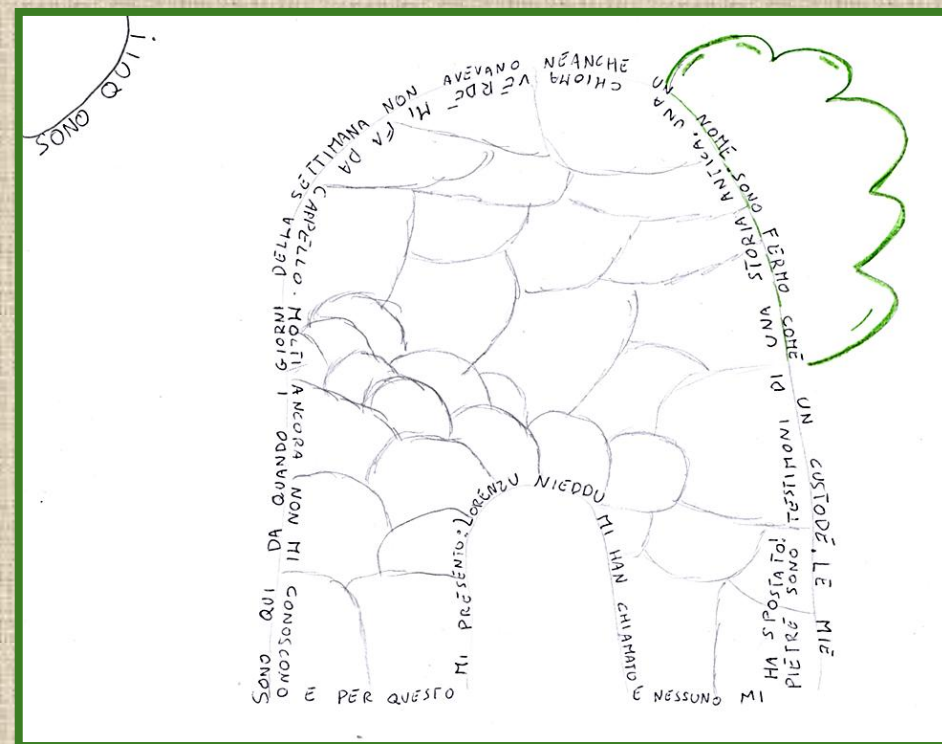 SONO QUI!
SONO QUI DA QUANDO I GIORNI DELLA SETTIMANA NON AVEVANO NEANCHE UN NOME. SONO FERMO COME UN CUSTODE. LE MIE
PIETRE SONO TESTIMONI DI UNA STORIA ANTICA. UNA CHIOMA VERDE MI FA DA CAPPELLO. MOLTI ANCORA NON MI CONOSCONO
E PER QUESTO
MI PRESENTO: LORENZU NIEDDU MI HAN CHIAMATO
E NESSUNO MI
HA SPOSTATO!